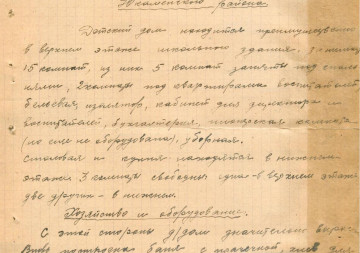 Юкаменского района.
Детский дом находится преимущественно
в верхнем этаже школьного здания, занимая
15 комнат, из них 5 комнат заняты под спаль-
нями, 2 комнаты под квартирами воспитателей
белевая, изолятор, кабинет для директора и
воспитателей, бухгалтерия, пионерская комната
(но еще не оборудована), уборная.
Столовая и кухня находятся в нижнем
этаже. 3 комнаты свободны одна в верхнем этаже
две других - в нижнем.
Хозяйство и оборудование.
С этой стороны д/дом значительно вырос.
построена баня с прачечной, хлев для